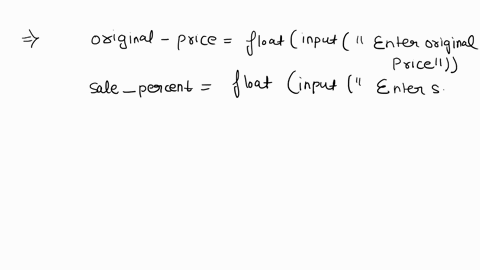 ⇒ original - price = float (input (" Enter original
Price"))
sale_percent = float (input (" Enter s